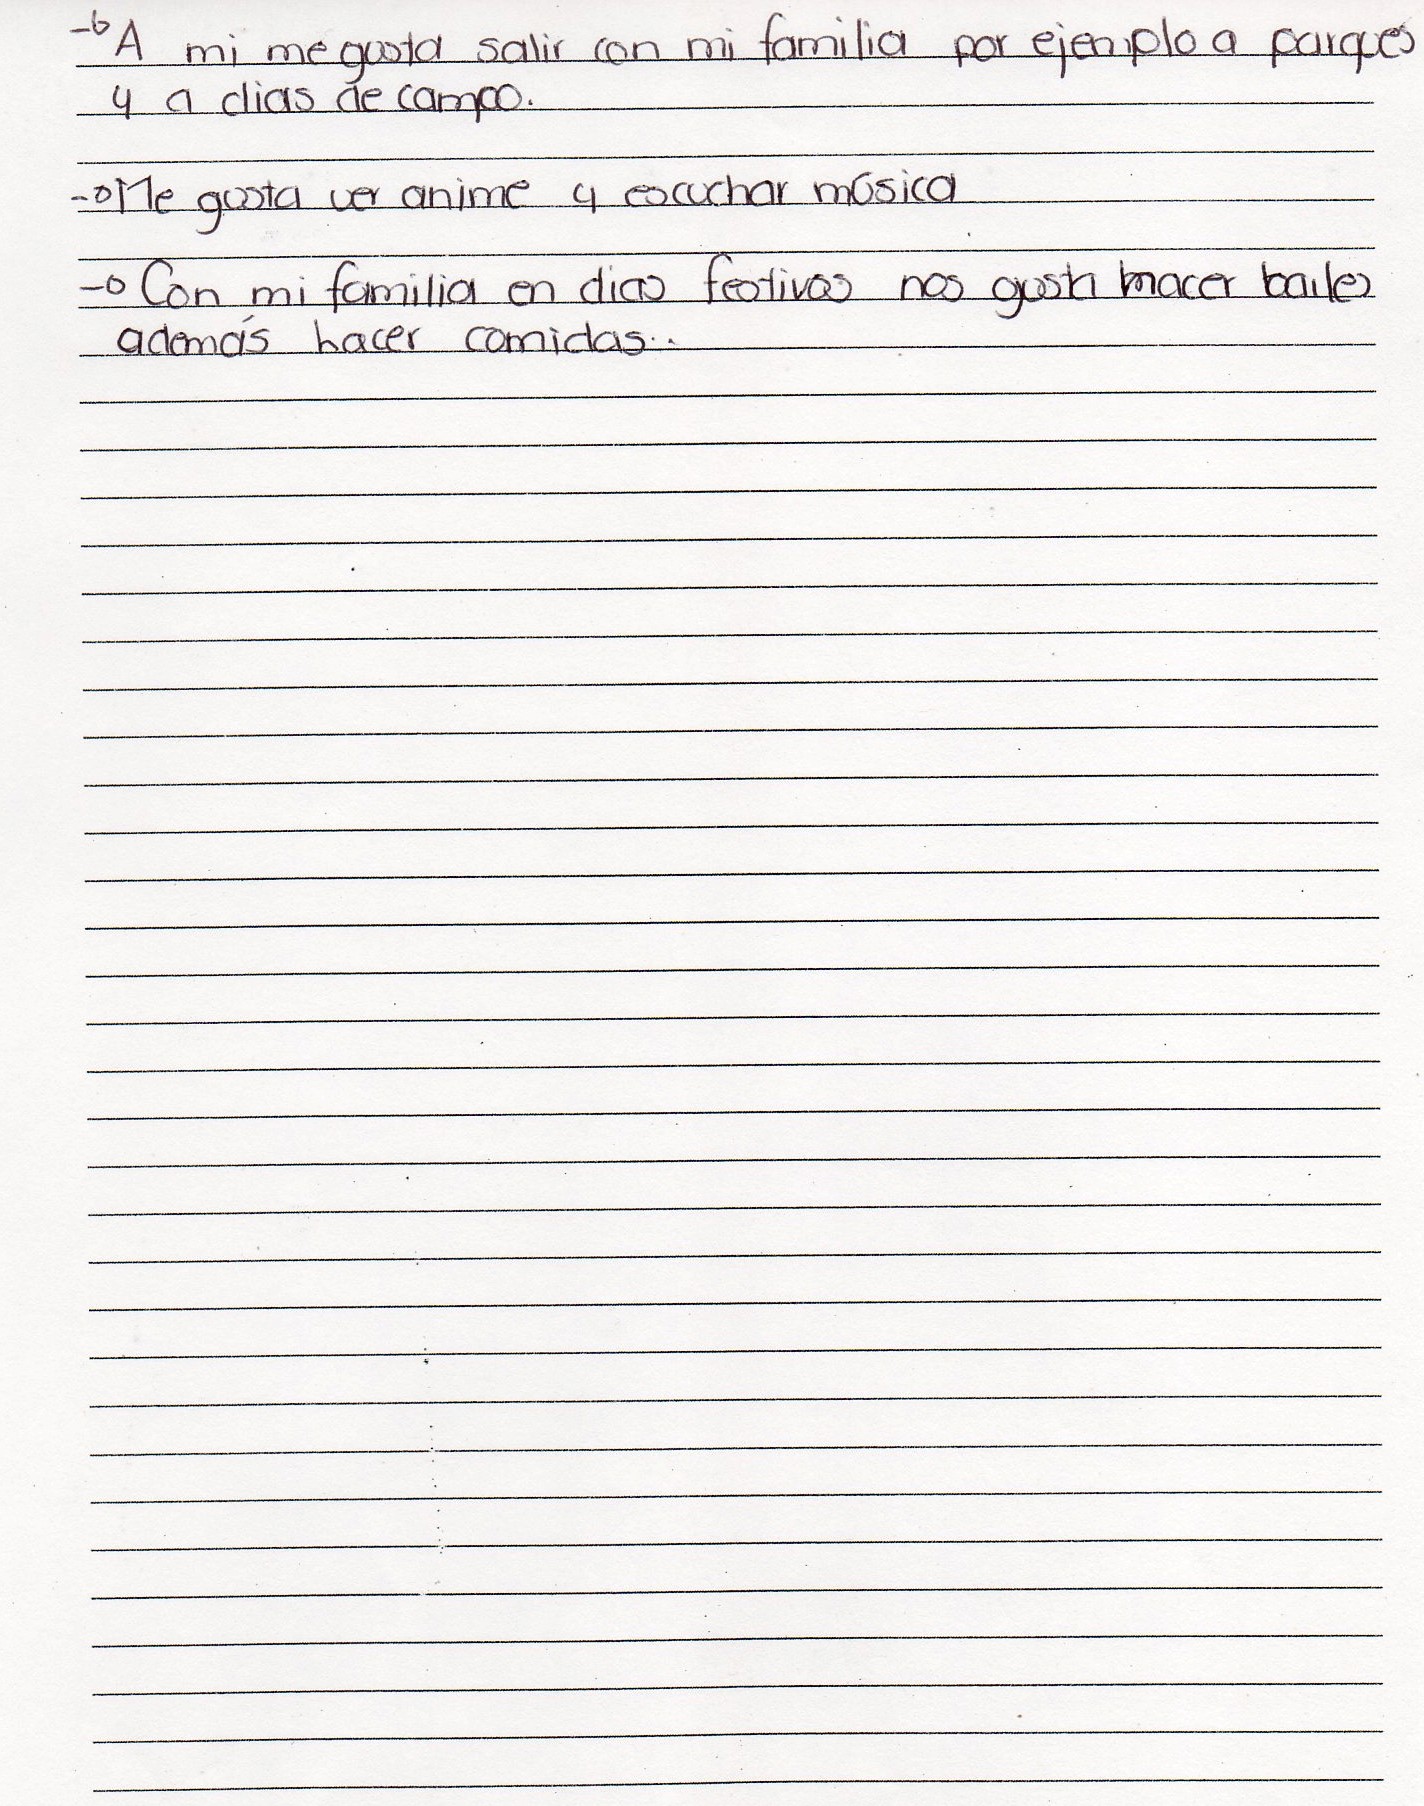 -o A mi me gusta salir con mi familia por ejemplo a parques
y a dias de campo.
-o Me gusta ver anime y escuchar música
-o Con mi familia en dias festivos nos gusta hacer bailes
además hacer comidas..